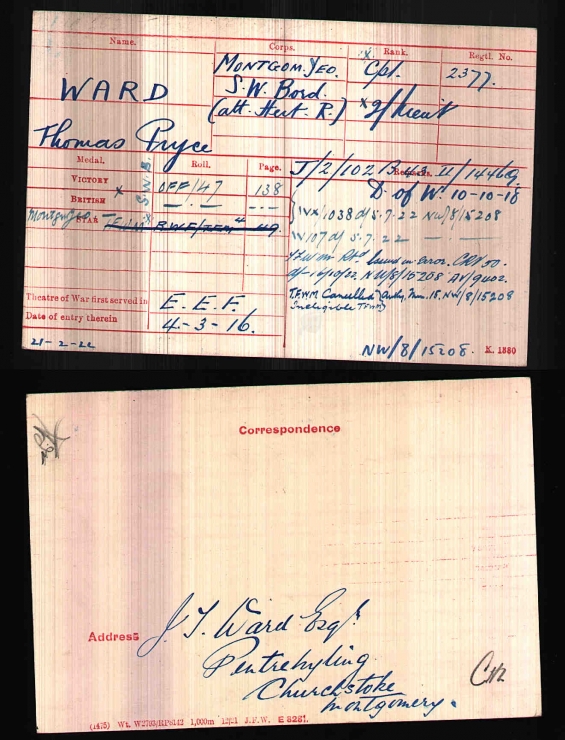 Name.
Corps.
Rank.
Regtl. No.
WARD
Thomas Pryce
MONTGOM. YEO.
S. W. Bord.
(att. Heref. R.)
x Cpl. 2377.
x 2/Lieut
Medal.
Roll.
Page.
Remarks.
VICTORY
x
S.W.B.
OFF/147
138
BRITISH
— . —
- - -
Montgy Yeo
STAR
T.F.W.M.
x
R.W.F/TEM 4
49.
J/2/102 B 43 
D. of W. 10-10-18
IVX/1038 d/5.7.22 NW/8/15208
IV/107 d/5.7.22 — . —
issued in error. CRV 50.
NW/8/15208
T.F.W.M Cancelled
Ineligible T.F.W.M
NW/8/15208
Theatre of War first served in
E. E. F.
Date of entry therein
4-3-16.
21-2-22
NW/8/15208. K. 1380
Correspondence
Address
J. T. Ward Esqr.
Pentrehyling
Churchstoke
Montgomery.
(1475) Wt. W2703/RP6142 1,000m 12/21 J.F.W. E 8281.